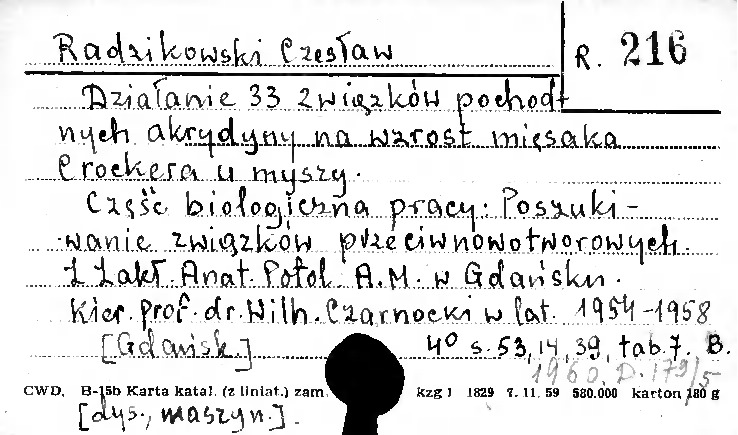 Radzikowski Czesław
R. 216
Działanie 33 związków pochod-
nych akrydyny na wzrost mięsaka
Crockera u myszy.
Część biologiczna pracy: Poszuki-
wanie związków przeciwnowotworowych.
Z Zakł. Anat. Patol. A.M. w Gdańsku.
Kier. prof. dr. Wilh. Czarnocki w lat. 1954-1958
[Gdańsk.] 4° s. 53, 14, 39, tab. 7. B.
1960, D. 179/5
CWD. B-15b Karta katal. (z liniat.) zam. kzg 1 1829 7. 11. 59 580.000 karton 180 g
[dys., maszyn.].